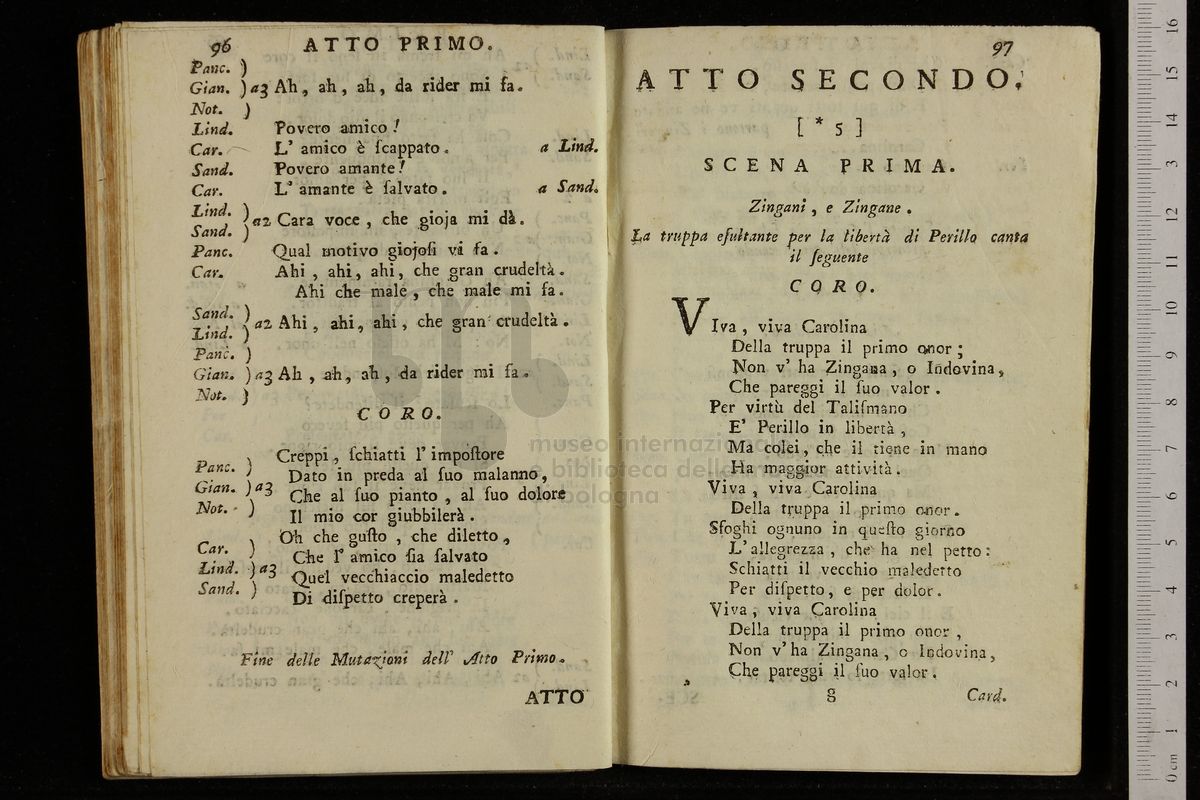 96 ATTO PRIMO.
Panc. )
Gian. ) a3 Ah, ah, ah, da rider mi fa.
Not. )
Lind. Povero amico!
Car. L' amico è ſcappato. a Lind.
Sand. Povero amante!
Car. L' amante è ſalvato. a Sand.
Lind. )
Sand. ) a2 Cara voce, che gioja mi dà.
Panc. Qual motivo giojoſi vi fa.
Car. Ahi, ahi, ahi, che gran crudeltà.
Ahi che male, che male mi fa.
Sand. )
Lind. ) a2 Ahi, ahi, ahi, che gran crudeltà.
Panc. )
Gian. ) a3 Ah, ah, ah, da rider mi fa.
Not. )
CORO.
Creppi, ſchiatti l' impoſtore
Panc. ) Dato in preda al ſuo malanno,
Gian. ) a3 Che al ſuo pianto, al ſuo dolore
Not. ) Il mio cor giubbilerà.
Oh che guſto, che diletto,
Car. ) Che l' amico ſia ſalvato
Lind. ) a3 Quel vecchiaccio maledetto
Sand. ) Di diſpetto creperà.
Fine delle Mutazioni dell' Atto Primo.
ATTO
97
ATTO SECONDO.
[ * 5 ]
SCENA PRIMA.
Zingani, e Zingane.
La truppa eſultante per la libertà di Perillo canta
il ſeguente
CORO.
VIva, viva Carolina
Della truppa il primo onor;
Non v' ha Zingana, o Indovina,
Che pareggi il ſuo valor.
Per virtù del Taliſmano
E' Perillo in libertà,
Ma colei, che il tiene in mano
Ha maggior attività.
Viva, viva Carolina
Della truppa il primo onor.
Sfoghi ognuno in queſto giorno
L' allegrezza, che ha nel petto:
Schiatti il vecchio maledetto
Per diſpetto, e per dolor.
Viva, viva Carolina
Della truppa il primo onor,
Non v' ha Zingana, o Indovina,
Che pareggi il ſuo valor.
g Card.
museo internazionale
e biblioteca della musica
bologna
0 cm 1 2 3 4 5 6 7 8 9 10 11 12 13 14 15 16